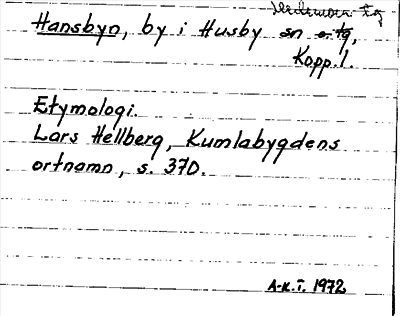 Hedemora tg
Hansbyn, by i Husby sn o. tg,
Kopp. l.
Etymologi.
Lars Hellberg, Kumlabygdens
ortnamn, s. 370.
A-K. T. 1972